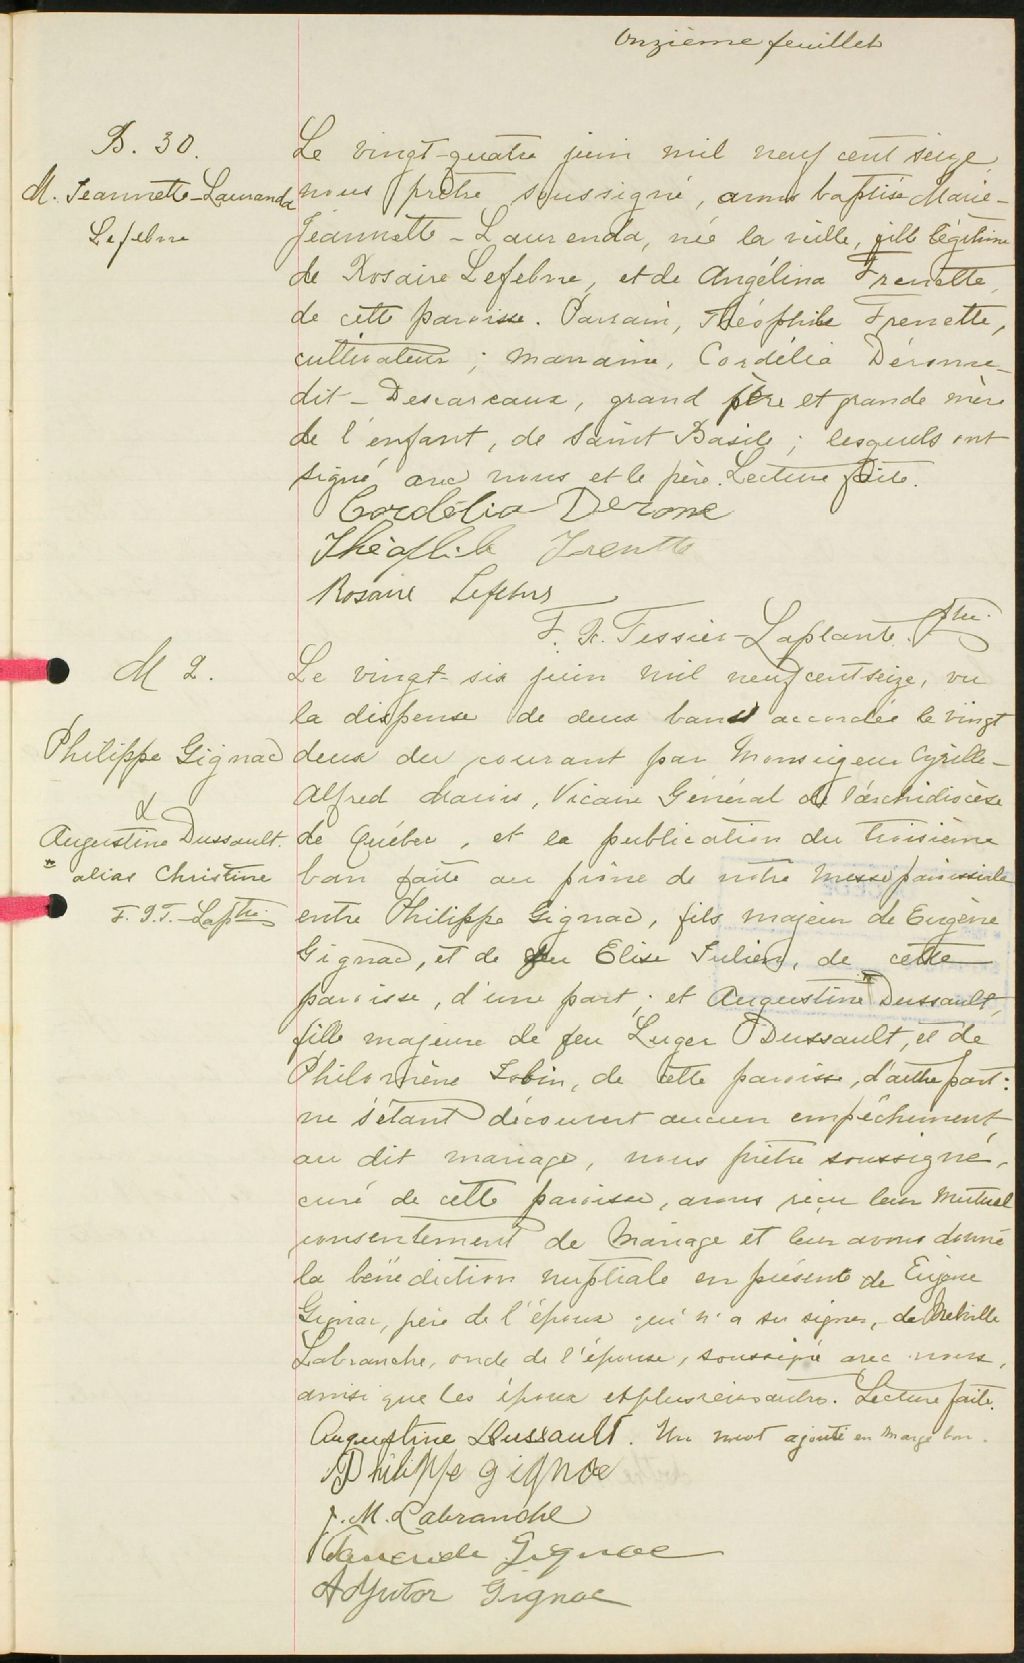 Onzième feuillet
B. 30.
M. Jeannette-Laurenda
Lefebvre
Le vingt-quatre juin mil neuf cent seize,
nous prêtre soussigné, avons baptisé Marie-
Jeannette-Laurenda, née la veille, fille légitime
de Rosaire Lefebvre, et de Angélina Frenette,
de cette paroisse. Parrain, Théophile Frenette,
cultivateur; marraine, Cordélia Dérome-
dit-Descareaux, grand père et grande mère
de l'enfant, de Saint Basile; lesquels ont
signé avec nous et le père. Lecture faite.
Cordélia Derome
Théophile Frenette
Rosaire Lefebvre
F. X. Tessier-Laplante, ptre.
M 2.
Philippe Gignac
&
Augustine Dussault.
" alias Christine
F. X. T.-Lapte.
Le vingt-six juin mil neuf cent seize, vu
la dispense de deux bans accordée le vingt
deux du courant par Monseigneur Cyrille-
Alfred Marois, Vicaire Général de l'archidiocèse
de Québec, et la publication du troisième
ban faite au prône de notre messe paroissiale
entre Philippe Gignac, fils majeur de Eugène
Gignac, et de feu Elise Julien, de cette
paroisse, d'une part; et Augustine " Dussault,
fille majeure de feu Luger Dussault, et de
Philomène Tobin, de cette paroisse, d'autre part:
ne s'étant découvert aucun empêchement
au dit mariage, nous prêtre soussigné,
curé de cette paroisse, avons reçu leur mutuel
consentement de mariage et leur avons donné
la bénédiction nuptiale en présence de Eugène
Gignac, père de l'époux qui n'a su signer, de
Labranche, oncle de l'épouse, soussigné avec nous,
ainsi que les époux et plusieurs autres. Lecture faite.
Augustine Dussault. Un mot ajouté en marge bon.
Philippe Gignac
J. M. Labranche
Gignac
Adjutor Gignac